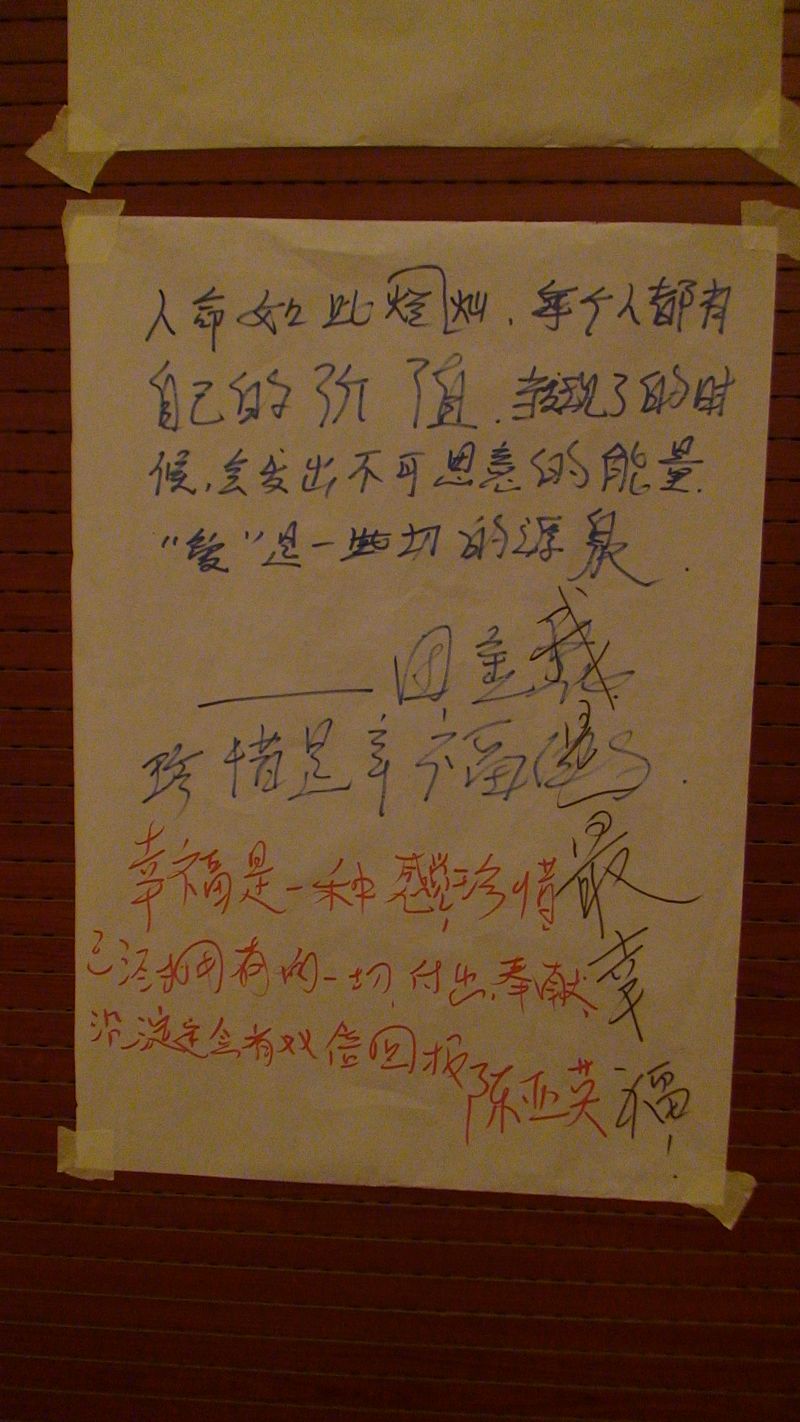 人命如此灿, 每个人都有
自己的价值. 发现了的时
候, 会发出不可思意的能量.
"爱"是一些切的源泉.
——田
珍惜是幸福
幸福是一种感觉珍惜
已经拥有的一切, 付出、奉献、
沉淀定会有双倍回报
陈亚英
我是最幸福!